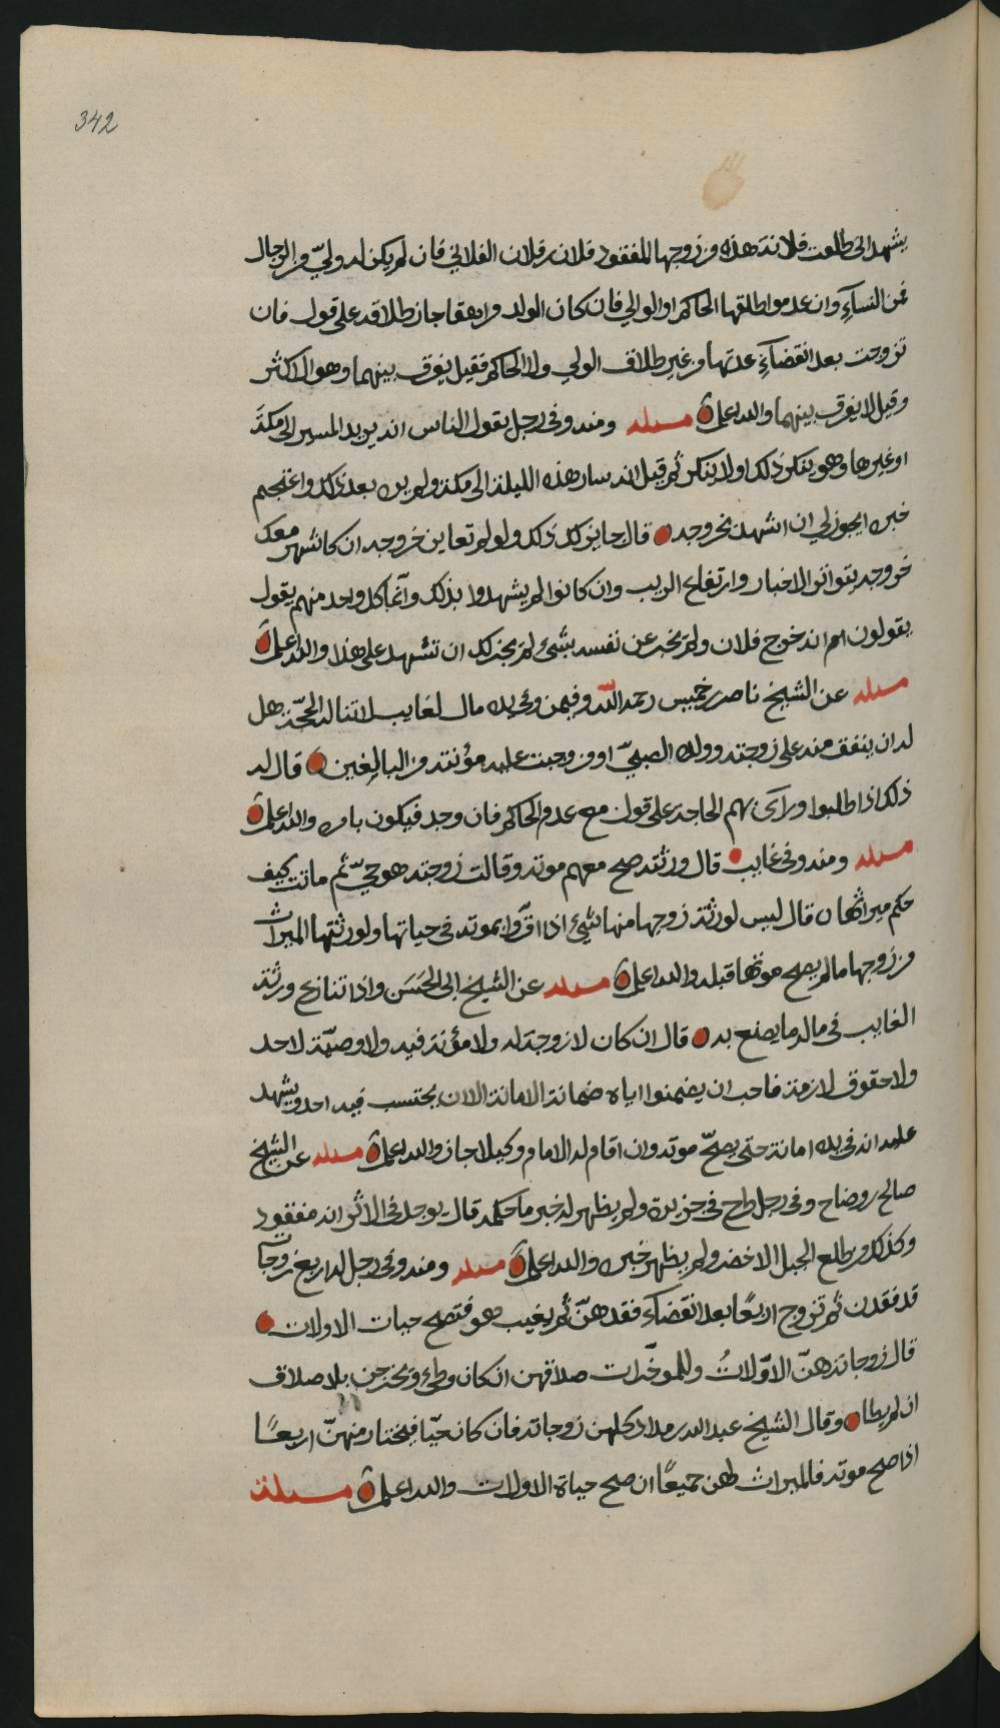 342
يشهد اني طلقت فلانة هذه من زوجها المفقود فلان بن فلان الفلاني فان لم يكن له ولي من الرجال
فمن النسآء وان عدموا طلقها الحاكم او الوالي فان كان الولد مراهقا جاز طلاقه على قول فان
تزوجت بعد انقضآء عدتها من غير طلاق الولي ولا الحاكم فقيل يفرق بينهما وهو الاكثر
وقيل لا يفرق بينهما والله اعلم مسئله ومنه وفي رجل يقول الناس انه يريد المسير الى مكة
او غيرها وهو ينكر ذلك او لا ينكر ثم قيل انه سار هذه الليلة الى مكة ولم ير بعد ذلك وانعجم
خبره ايجوز لي ان اشهد بخروجه قال جايز لك ذلك ولو لم تعاين خروجه ان كان شهر معك
خروجه بتواتر الاخبار وارتفاع الريب وان كانوا لم يشهدوا بذلك وانما كل واحد منهم يقول
يقولون انه خرج فلان ولم يخبر عن نفسه بشئ لم يجز لك ان تشهد على هذا والله اعلم
مسئله عن الشيخ ناصر بن خميس رحمه الله وفيمن في يده مال لغايب لا تناله الحجة هل
له ان ينفق منه على زوجته وولده الصبي او من وجبت عليه مؤنته من البالغين قال له
ذلك اذا طلبوا وراى بهم الحاجة على قول مع عدم الحاكم فان وجد فيكون بامره والله اعلم
مسئله ومنه وفي غايب قال ورثته صح معهم موته وقالت زوجته هو حي ثم ماتت كيف
حكم ميراثها قال ليس لورثة زوجها منها شئ اذا اقروا بموته في حياتها ولورثتها الميراث
من زوجها ما لم يصح موتها قبله والله اعلم مسئله عن الشيخ ابي الحسن واذا تنازع ورثة
الغايب في ماله ما يصنع به قال ان كان لا زوجة له ولا مؤنة فيه ولا وصية لاحد
ولا حقوق لازمة فاحب ان يضمنوا اياه ضمانة الامانة الا ان يحتسب فيه احد ويشهد
عليه انه في يده امانة حتى يصح موته وان اقام له الامام وكيلا جاز والله اعلم مسئله عن الشيخ
صالح بن وضاح وفي رجل طاح في جزيرة ولم يظهر له خبر ما حكمه قال يوجد في الاثر انه مفقود
وكذلك من طلع الجبل الاخضر ولم يظهر خبره والله اعلم مسئله ومنه وفي رجل له اربع زوجات
قد فقدن ثم تزوج اربعًا بعد انقضآء فقدهن ثم يغيب هو فتصح حيات الاولات
قال زوجاته هن الاولات وللموخرات صداقهن ان كان وطئ ويخرجن بلا صداق
ان لم يطا وقال الشيخ عبد الله بن مداد كلهن زوجاته فان كان حيا فيختار منهن اربعًا
اذا صح موته فالميراث لهن جميعًا ان صح حياة الاولات والله اعلم مسئلة